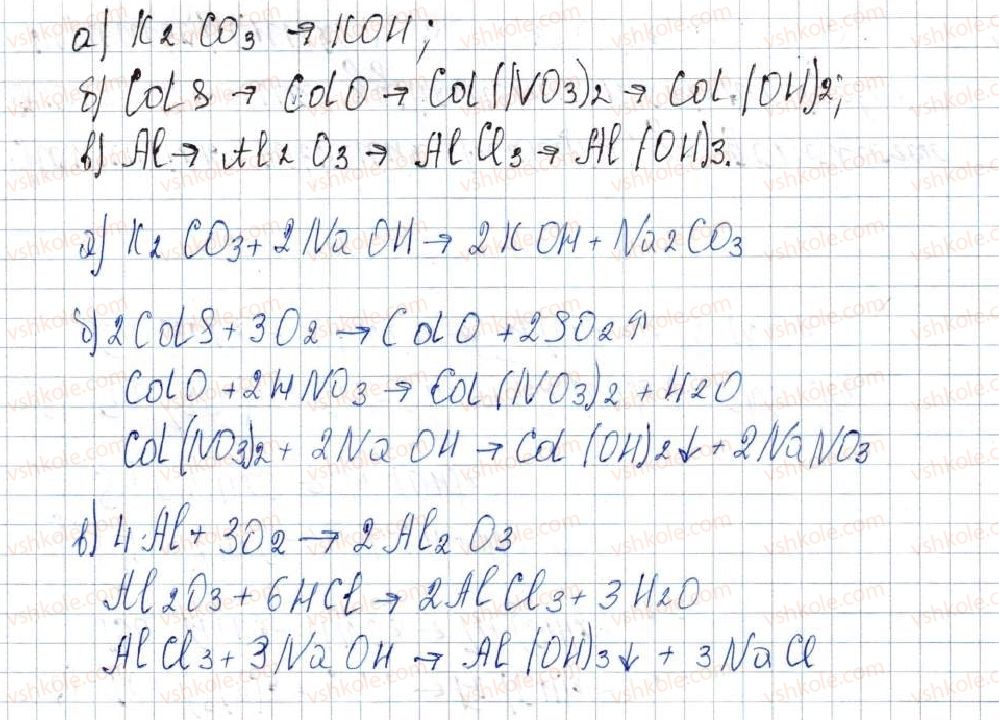 а) K2CO3 → KOH;
б) CdS → CdO → Cd(NO3)2 → Cd(OH)2;
в) Al → Al2O3 → AlCl3 → Al(OH)3.
а) K2CO3 + 2NaOH → 2KOH + Na2CO3
б) 2CdS + 3O2 → CdO + 2SO2↑
CdO + 2HNO3 → Cd(NO3)2 + H2O
Cd(NO3)2 + 2NaOH → Cd(OH)2↓ + 2NaNO3
в) 4Al + 3O2 → 2Al2O3
Al2O3 + 6HCl → 2AlCl3 + 3H2O
AlCl3 + 3NaOH → Al(OH)3↓ + 3NaCl